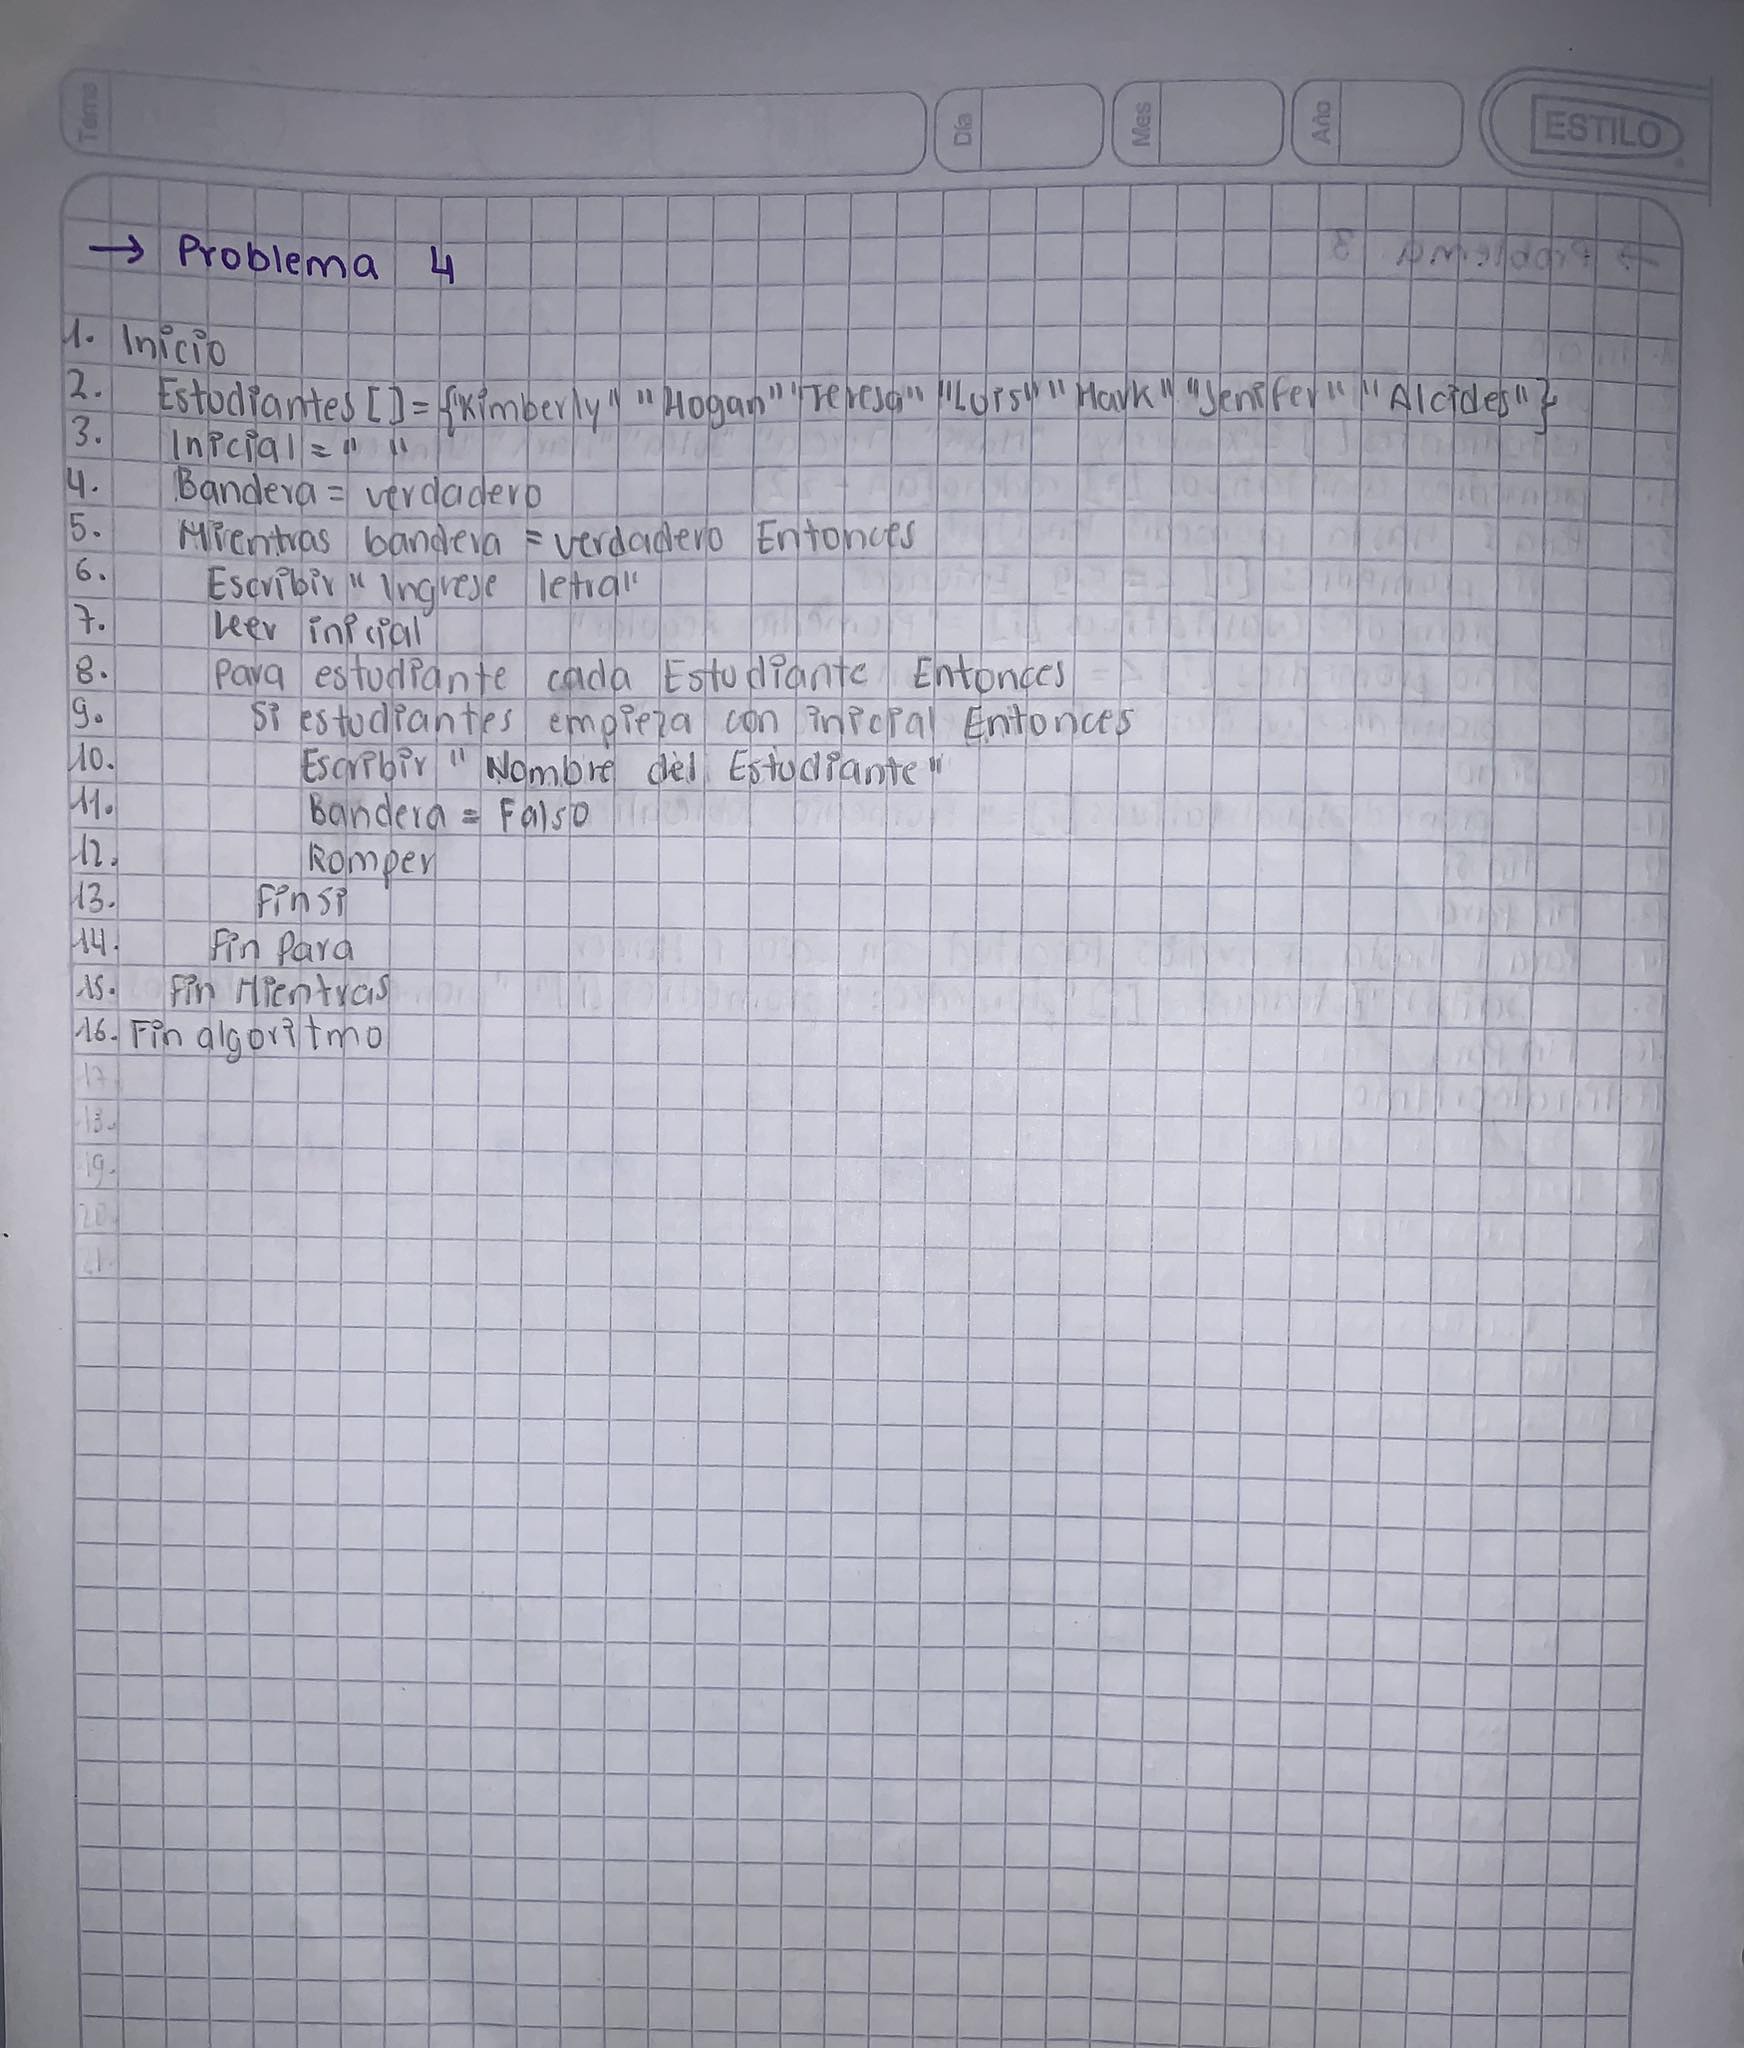 Tema Día Mes Año ESTILO
→ Problema 4
1. Inicio
2. Estudiantes [] = {"Kimberly" "Hogan" "Teresa" "Luis" "Mark" "Jenifer" "Alcides"}
3. Inicial = " "
4. Bandera = verdadero
5. Mientras bandera = verdadero Entonces
6. Escribir "Ingrese letra"
7. Leer inicial
8. Para estudiante cada Estudiante Entonces
9. Si estudiantes empieza con inicial Entonces
10. Escribir "Nombre del Estudiante"
11. Bandera = Falso
12. Romper
13. Fin si
14. Fin Para
15. Fin Mientras
16. Fin algoritmo
17.
19.
20.